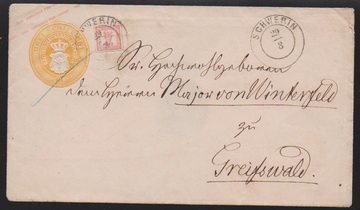 SCHWERIN
SCHWERIN
29
8
Sr. Hochwohlgeboren
dem Herrn Major von Winterfeld
zu
Greifswald.